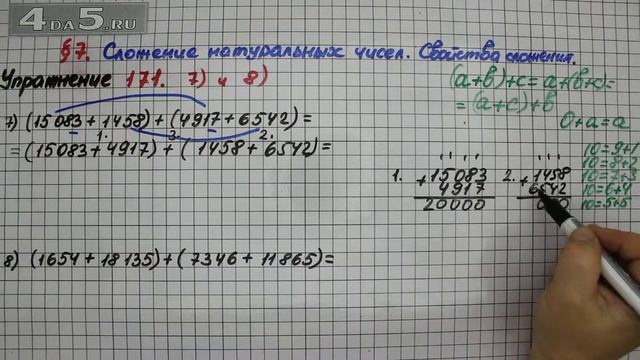 4DA5.RU
§7. Сложение натуральных чисел. Свойства сложения.
Упражнение 171. 7) и 8)
(a+b)+c=a+(b+c)=
=(a+c)+b
0+a=a
7) (15083+1458)+(4917+6542)=
1. 3. 2.
=(15083+4917)+(1458+6542)=
1. +15083
4917
20000
2. +1458
6542
000
10=9+1
10=8+2
10=7+3
10=6+4
10=5+5
8) (1654+18135)+(7346+11865)=